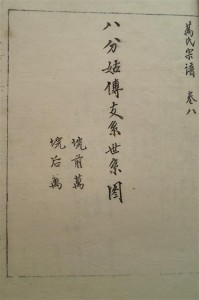 萬氏宗谱 卷八
八分姑傳支系世系图
垸前萬
垸后萬